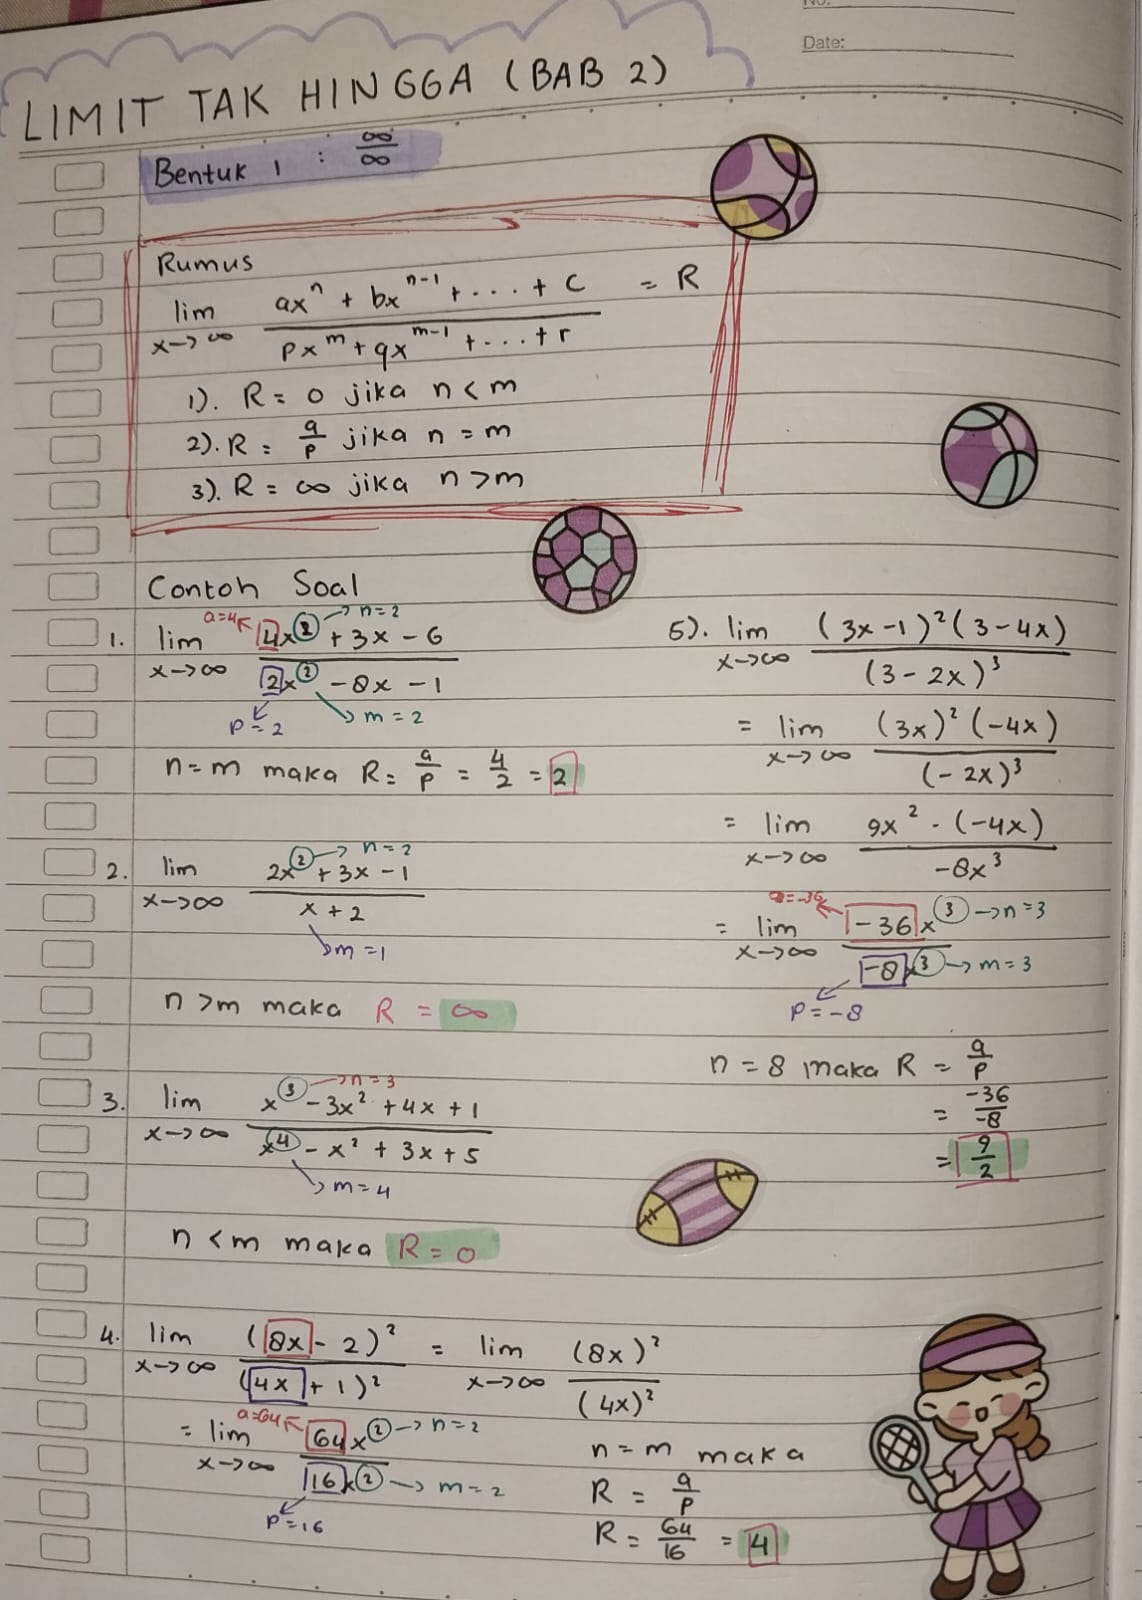 No.
Date:
LIMIT TAK HINGGA (BAB 2)
Bentuk 1 : ∞/∞
Rumus
lim x->∞ (ax^n + bx^(n-1) + . . . + c)/(px^m + qx^(m-1) + . . . + r) = R
1). R = 0 jika n < m
2). R = a/p jika n = m
3). R = ∞ jika n > m
Contoh Soal
a=4 -> n=2
1. lim x->∞ (4x^2 + 3x - 6)/(2x^2 - 8x - 1)
p=2 -> m = 2
n = m maka R = a/p = 4/2 = 2
-> n = 2
2. lim x->∞ (2x^2 + 3x - 1)/(x + 2)
-> m = 1
n > m maka R = ∞
-> n = 3
3. lim x->∞ (x^3 - 3x^2 + 4x + 1)/(x^4 - x^2 + 3x + 5)
-> m = 4
n < m maka R = 0
4. lim x->∞ (8x - 2)^2/(4x + 1)^2 = lim x->∞ (8x)^2/(4x)^2
a=64 -> n = 2
= lim x->∞ 64x^2/16x^2 -> m = 2
p=16
n = m maka
R = a/p
R = 64/16 = 4
5). lim x->∞ (3x - 1)^2 (3 - 4x)/(3 - 2x)^3
= lim x->∞ (3x)^2 (-4x)/(-2x)^3
= lim x->∞ 9x^2 . (-4x)/-8x^3
a=-36 -> n = 3
= lim x->∞ -36x^3/-8x^3 -> m = 3
p = -8
n = 8 maka R = a/p
= -36/-8
= 9/2